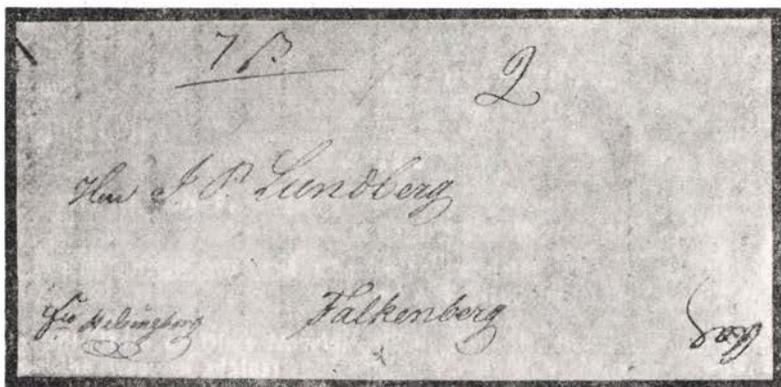 7 β 2
Herr J P. Lundberg
Fro Helsingborg Falkenberg